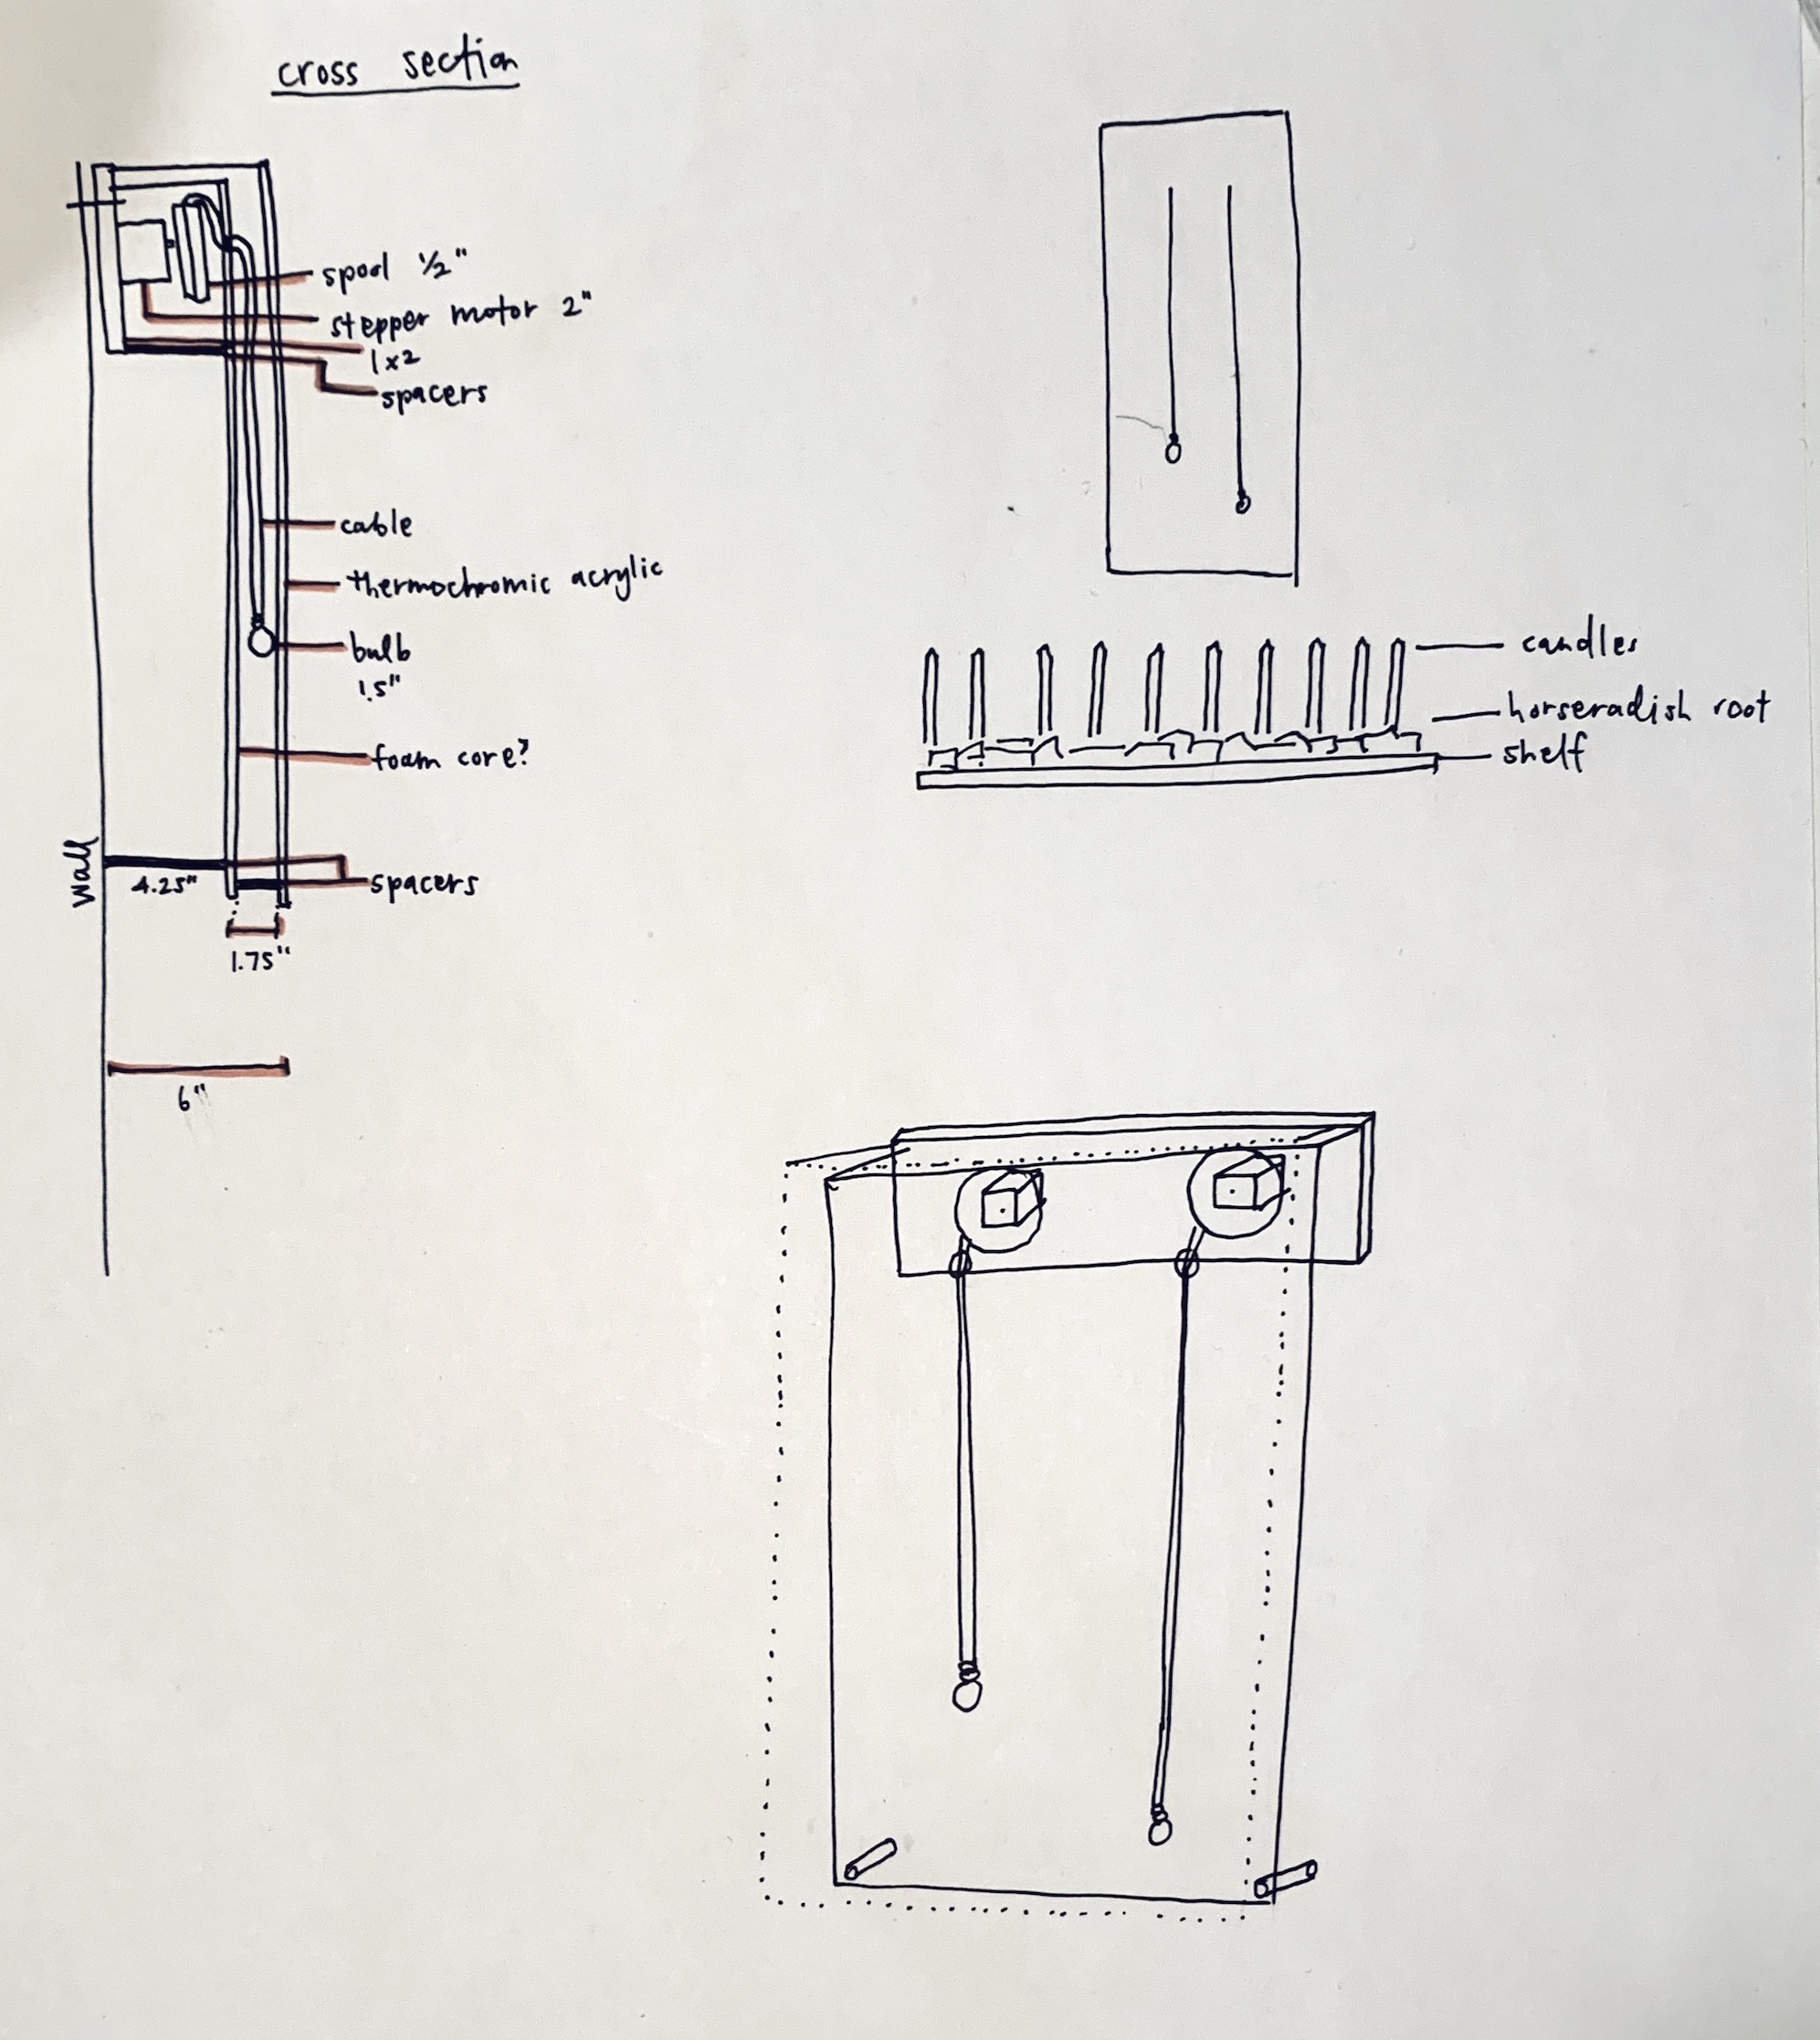 cross section
spool 1/2"
stepper motor 2"
1x2
spacers
cable
thermochromic acrylic
bulb
1.5"
foam core?
wall
4.25"
spacers
1.75"
6"
candles
horseradish root
shelf